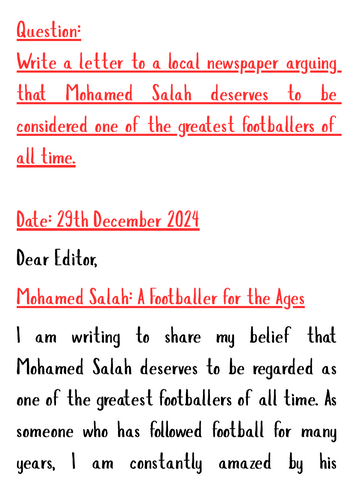 Question:
Write a letter to a local newspaper arguing
that Mohamed Salah deserves to be
considered one of the greatest footballers of
all time.
Date: 29th December 2024
Dear Editor,
Mohamed Salah: A Footballer for the Ages
I am writing to share my belief that
Mohamed Salah deserves to be regarded as
one of the greatest footballers of all time. As
someone who has followed football for many
years, I am constantly amazed by his